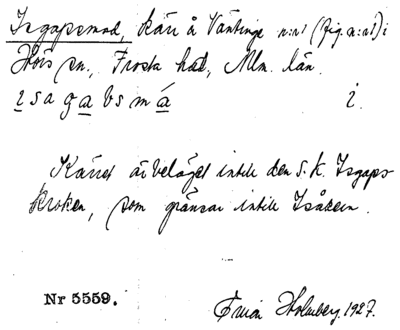 Isgapsmad, kärr å Väntinge n:n¹ (fig. n:a1) i
Hörs sn., Frosta hd., Mlm. län.
i s a g a b s m á i.
Kärret är beläget intill den s. k. Isgaps
kroken, som gränsar intill Isåkern.
Nr 5559.
Holmberg. 1927.